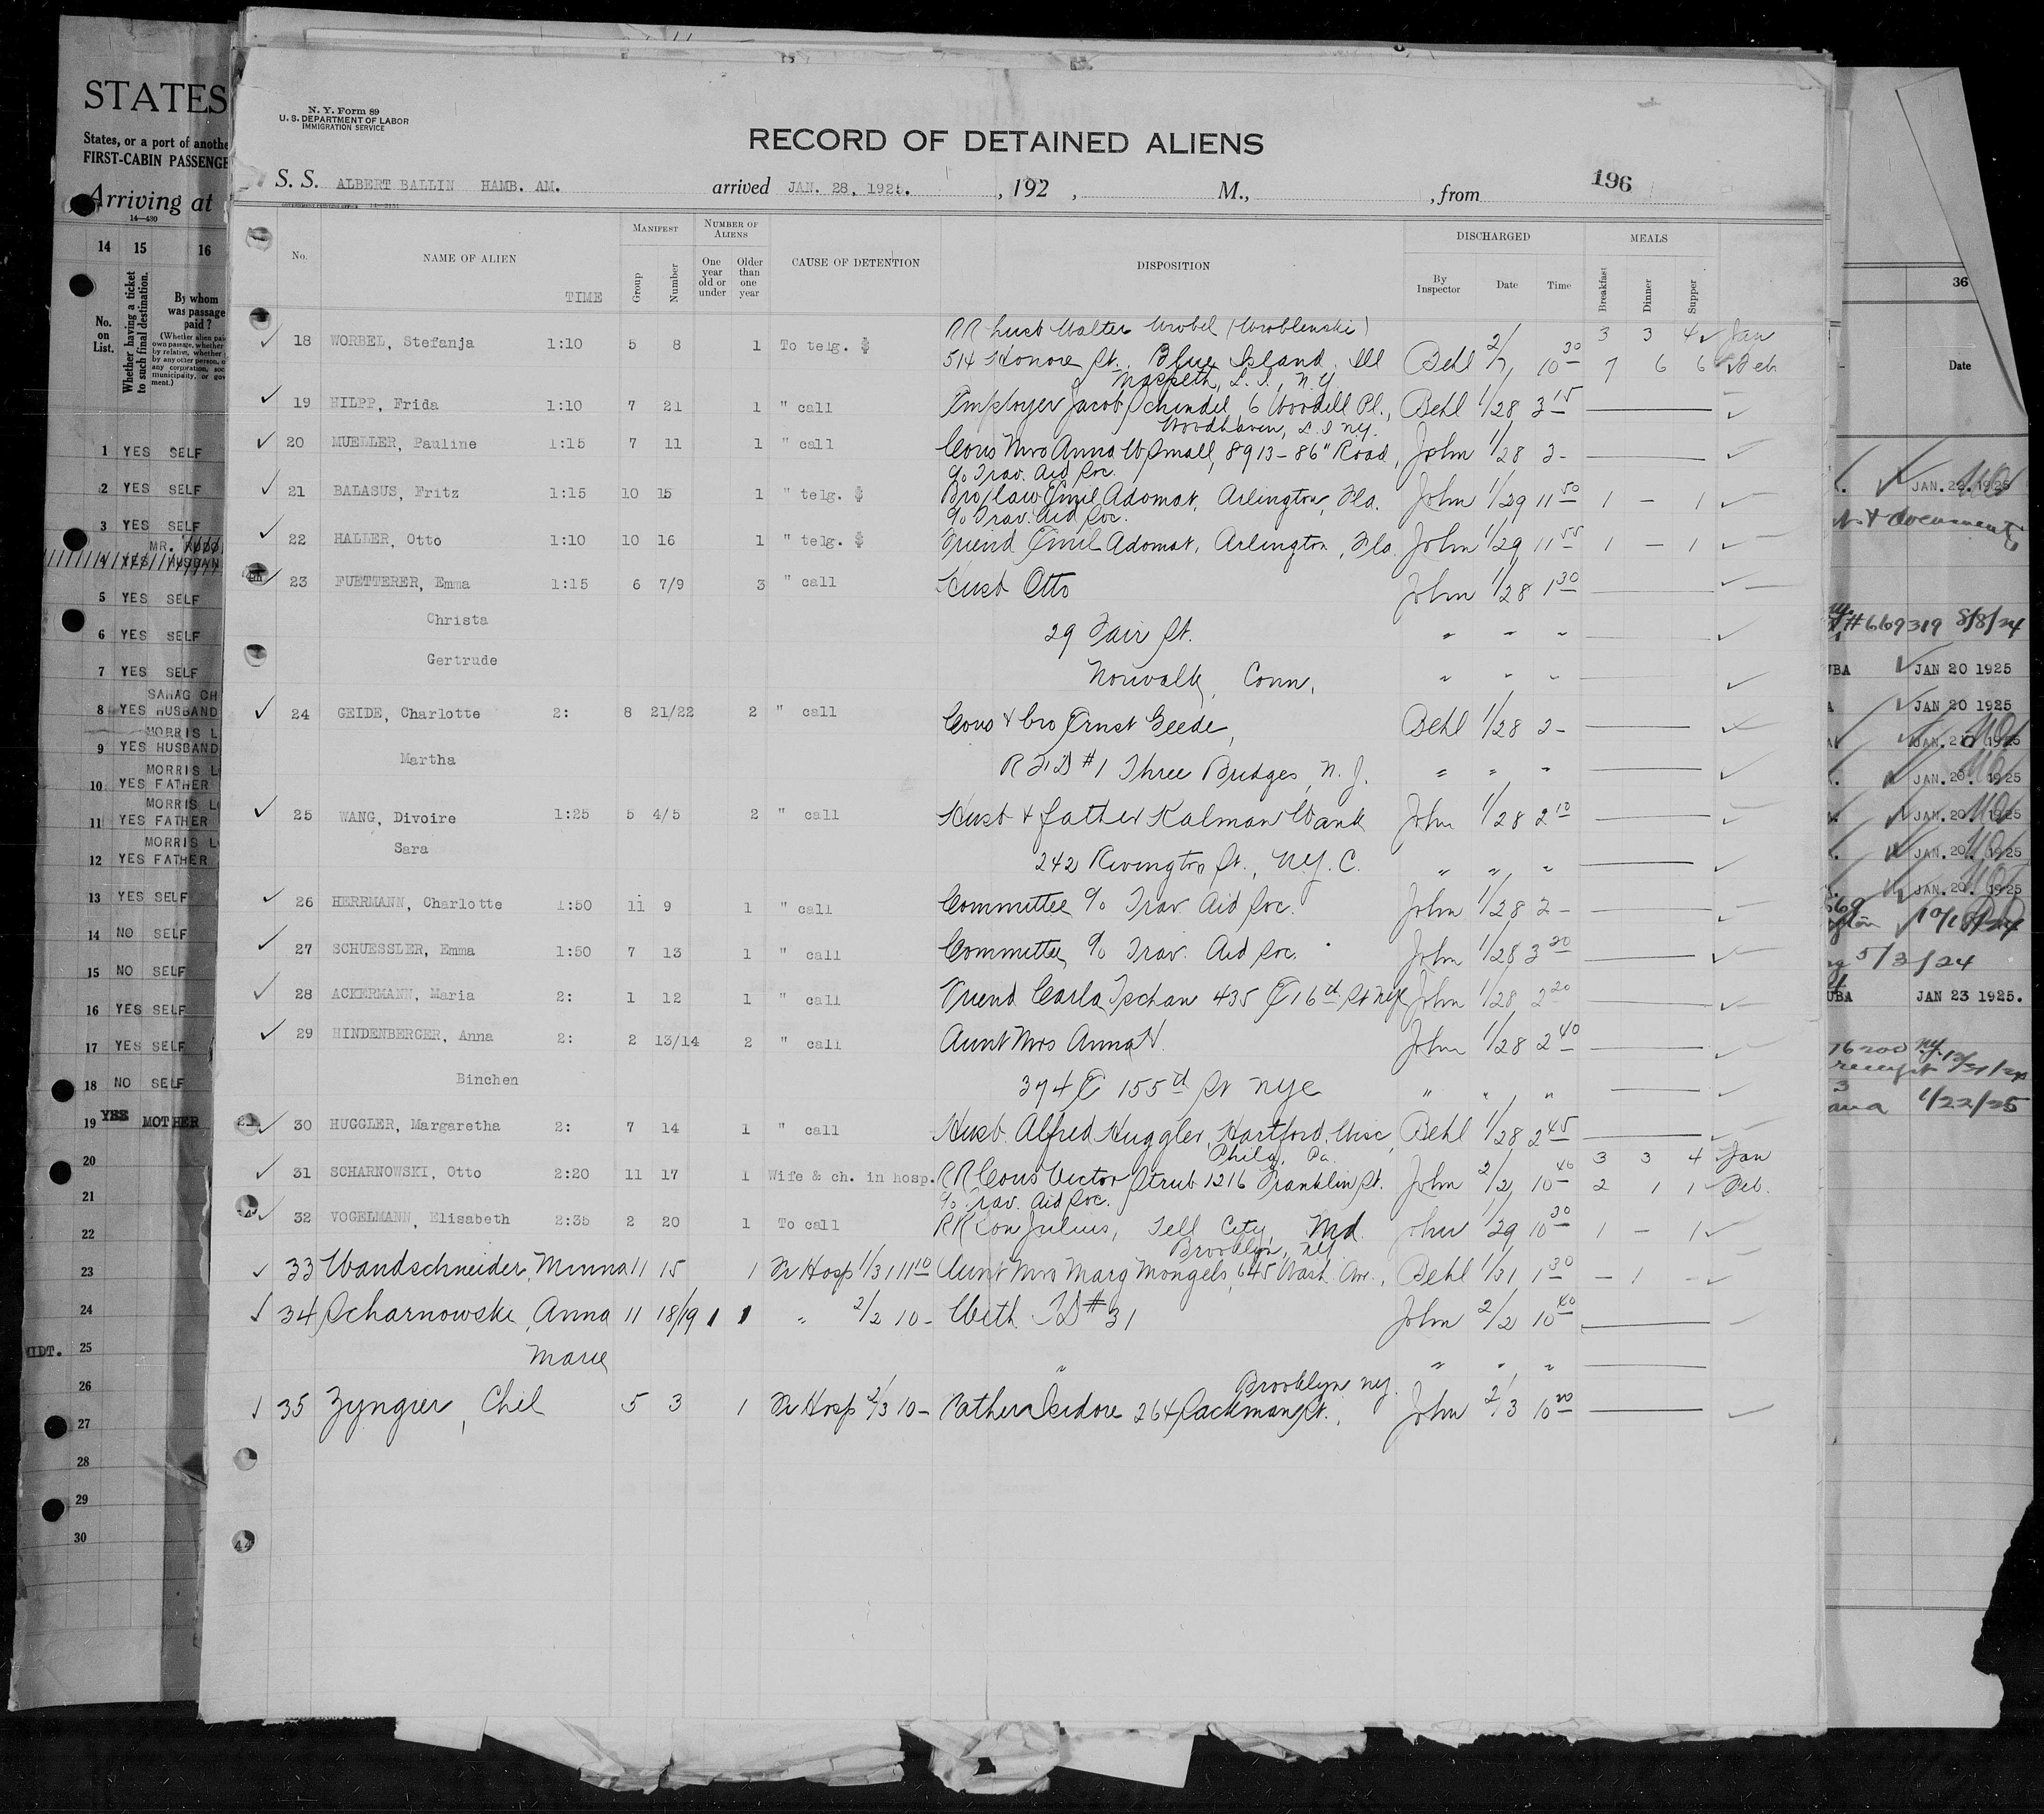 N. Y. Form 89
U. S. DEPARTMENT OF LABOR
IMMIGRATION SERVICE
RECORD OF DETAINED ALIENS
196
S. S. ALBERT BALLIN HAMB. AM. arrived JAN. 28, 1925. , 192 , M., , from
No. NAME OF ALIEN TIME MANIFEST Group Number NUMBER OF ALIENS One year old or under Older than one year CAUSE OF DETENTION DISPOSITION DISCHARGED By Inspector Date Time MEALS Breakfast Dinner Supper
RR husb Walter Wrobel (Wroblenski) 3 3 4 Jan
18 WORBEL, Stefanja 1:10 5 8 1 To telg. $ 514 Honore St. Blue Island, Ill Behl 2/7 10 30 7 6 6 Feb
Maspeth, L. I., N.Y.
19 HILPP, Frida 1:10 7 21 1 " call Employer Jacob Schindel, 6 Woodell Pl., Behl 1/28 3 15
Woodhaven, L. I. NY.
20 MUELLER, Pauline 1:15 7 11 1 " call Cous Mrs Anna W Small, 8913-86" Road, John 1/28 3-
c/o Trav. Aid Soc.
21 BALASUS, Fritz 1:15 10 15 1 " telg. $ Bro/law Emil Adomat, Arlington, Fla. John 1/29 11 50 1 - 1
c/o Trav. Aid Soc.
22 HALLER, Otto 1:10 10 16 1 " telg. $ Friend Emil Adomat, Arlington, Fla. John 1/29 11 55 1 - 1
23 FUETTERER, Emma 1:15 6 7/9 3 " call Husb Otto John 1/28 1 30
Christa 29 Fair St. " " "
Gertrude Norwalk, Conn. " " "
24 GEIDE, Charlotte 2: 8 21/22 2 " call Cous & bro Ernst Geede, Behl 1/28 2-
Martha R.F.D #1 Three Bridges, N. J. " " "
25 WANG, Divoire 1:25 5 4/5 2 " call Husb & father Kalman Wank John 1/28 2 10
Sara 242 Rivington St., N.Y. C. " " "
26 HERRMANN, Charlotte 1:50 11 9 1 " call Committee c/o Trav. Aid Soc. John 1/28 2-
27 SCHUESSLER, Emma 1:50 7 13 1 " call Committee c/o Trav. Aid Soc. John 1/28 3 20
28 ACKERMANN, Maria 2: 1 12 1 " call Friend Carla Tschan 435 E 16th St NYC John 1/28 2 20
29 HINDENBERGER, Anna 2: 2 13/14 2 " call Aunt Mrs Anna H. John 1/28 2 40
Binchen 374 E 155th St NYC " " "
30 HUGGLER, Margaretha 2: 7 14 1 " call Husb. Alfred Huggler, Hartford, Wisc, Behl 1/28 2 45
Phila. Pa. 3 3 4 Jan
31 SCHARNOWSKI, Otto 2:20 11 17 1 Wife & ch. in hosp. RR Cous Victor Strub 1216 Franklin St. John 2/2 10 40 2 1 1 Feb.
c/o Trav. Aid Soc.
32 VOGELMANN, Elisabeth 2:35 2 20 1 To call RR Son Julius, Tell City, Md. John 1/29 10 30 1 - 1
Brooklyn, NY
33 Wandschneider, Minna 11 15 1 In Hosp 1/31 11 10 Aunt Mrs Marg Mongels, 645 Wash. Ave., Behl 1/31 1 30 - 1 -
34 Scharnowske, Anna 11 18/19 1 1 " 2/2 10- With TD #31 John 2/2 10 40
Marie " " " "
Brooklyn NY.
35 Zyngier, Chil 5 3 1 In Hosp 2/3 10- Father Isidore 264 Sackman St., John 2/3 10 20
STATES
States, or a port of anothe
FIRST-CABIN PASSENGE
Arriving at
14—430
14 15 16
No. on List.
Whether having a ticket to such final destination.
By whom was passage paid?
1 YES SELF
2 YES SELF
3 YES SELF
4 YES HUSBAN
5 YES SELF
6 YES SELF
7 YES SELF
SAHAG CH
8 YES HUSBAND
MORRIS L
9 YES HUSBAND
MORRIS L
10 YES FATHER
MORRIS L
11 YES FATHER
MORRIS L
12 YES FATHER
13 YES SELF
14 NO SELF
15 NO SELF
16 YES SELF
17 YES SELF
18 NO SELF
19 YES MOTHER
20
21
22
23
24
MIDT. 25
26
27
28
29
30
36
Date
JAN. 22. 1925
& documents
#669319 8/8/24
UBA JAN 20 1925
JAN 20 1925
JAN. 20 1925
JAN. 20. 1925
JAN. 20. 1925
JAN. 20. 1925
JAN. 20. 1925
5/3/24
UBA JAN 23 1925.
receipt
1/22/25